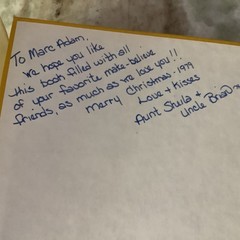 To Marc Adam,
We hope you like
this book filled with all
of your favorite make-believe
friends, as much as we love you!!
Merry Christmas - 1979
Love & Kisses
Aunt Sheila &
Uncle Brian